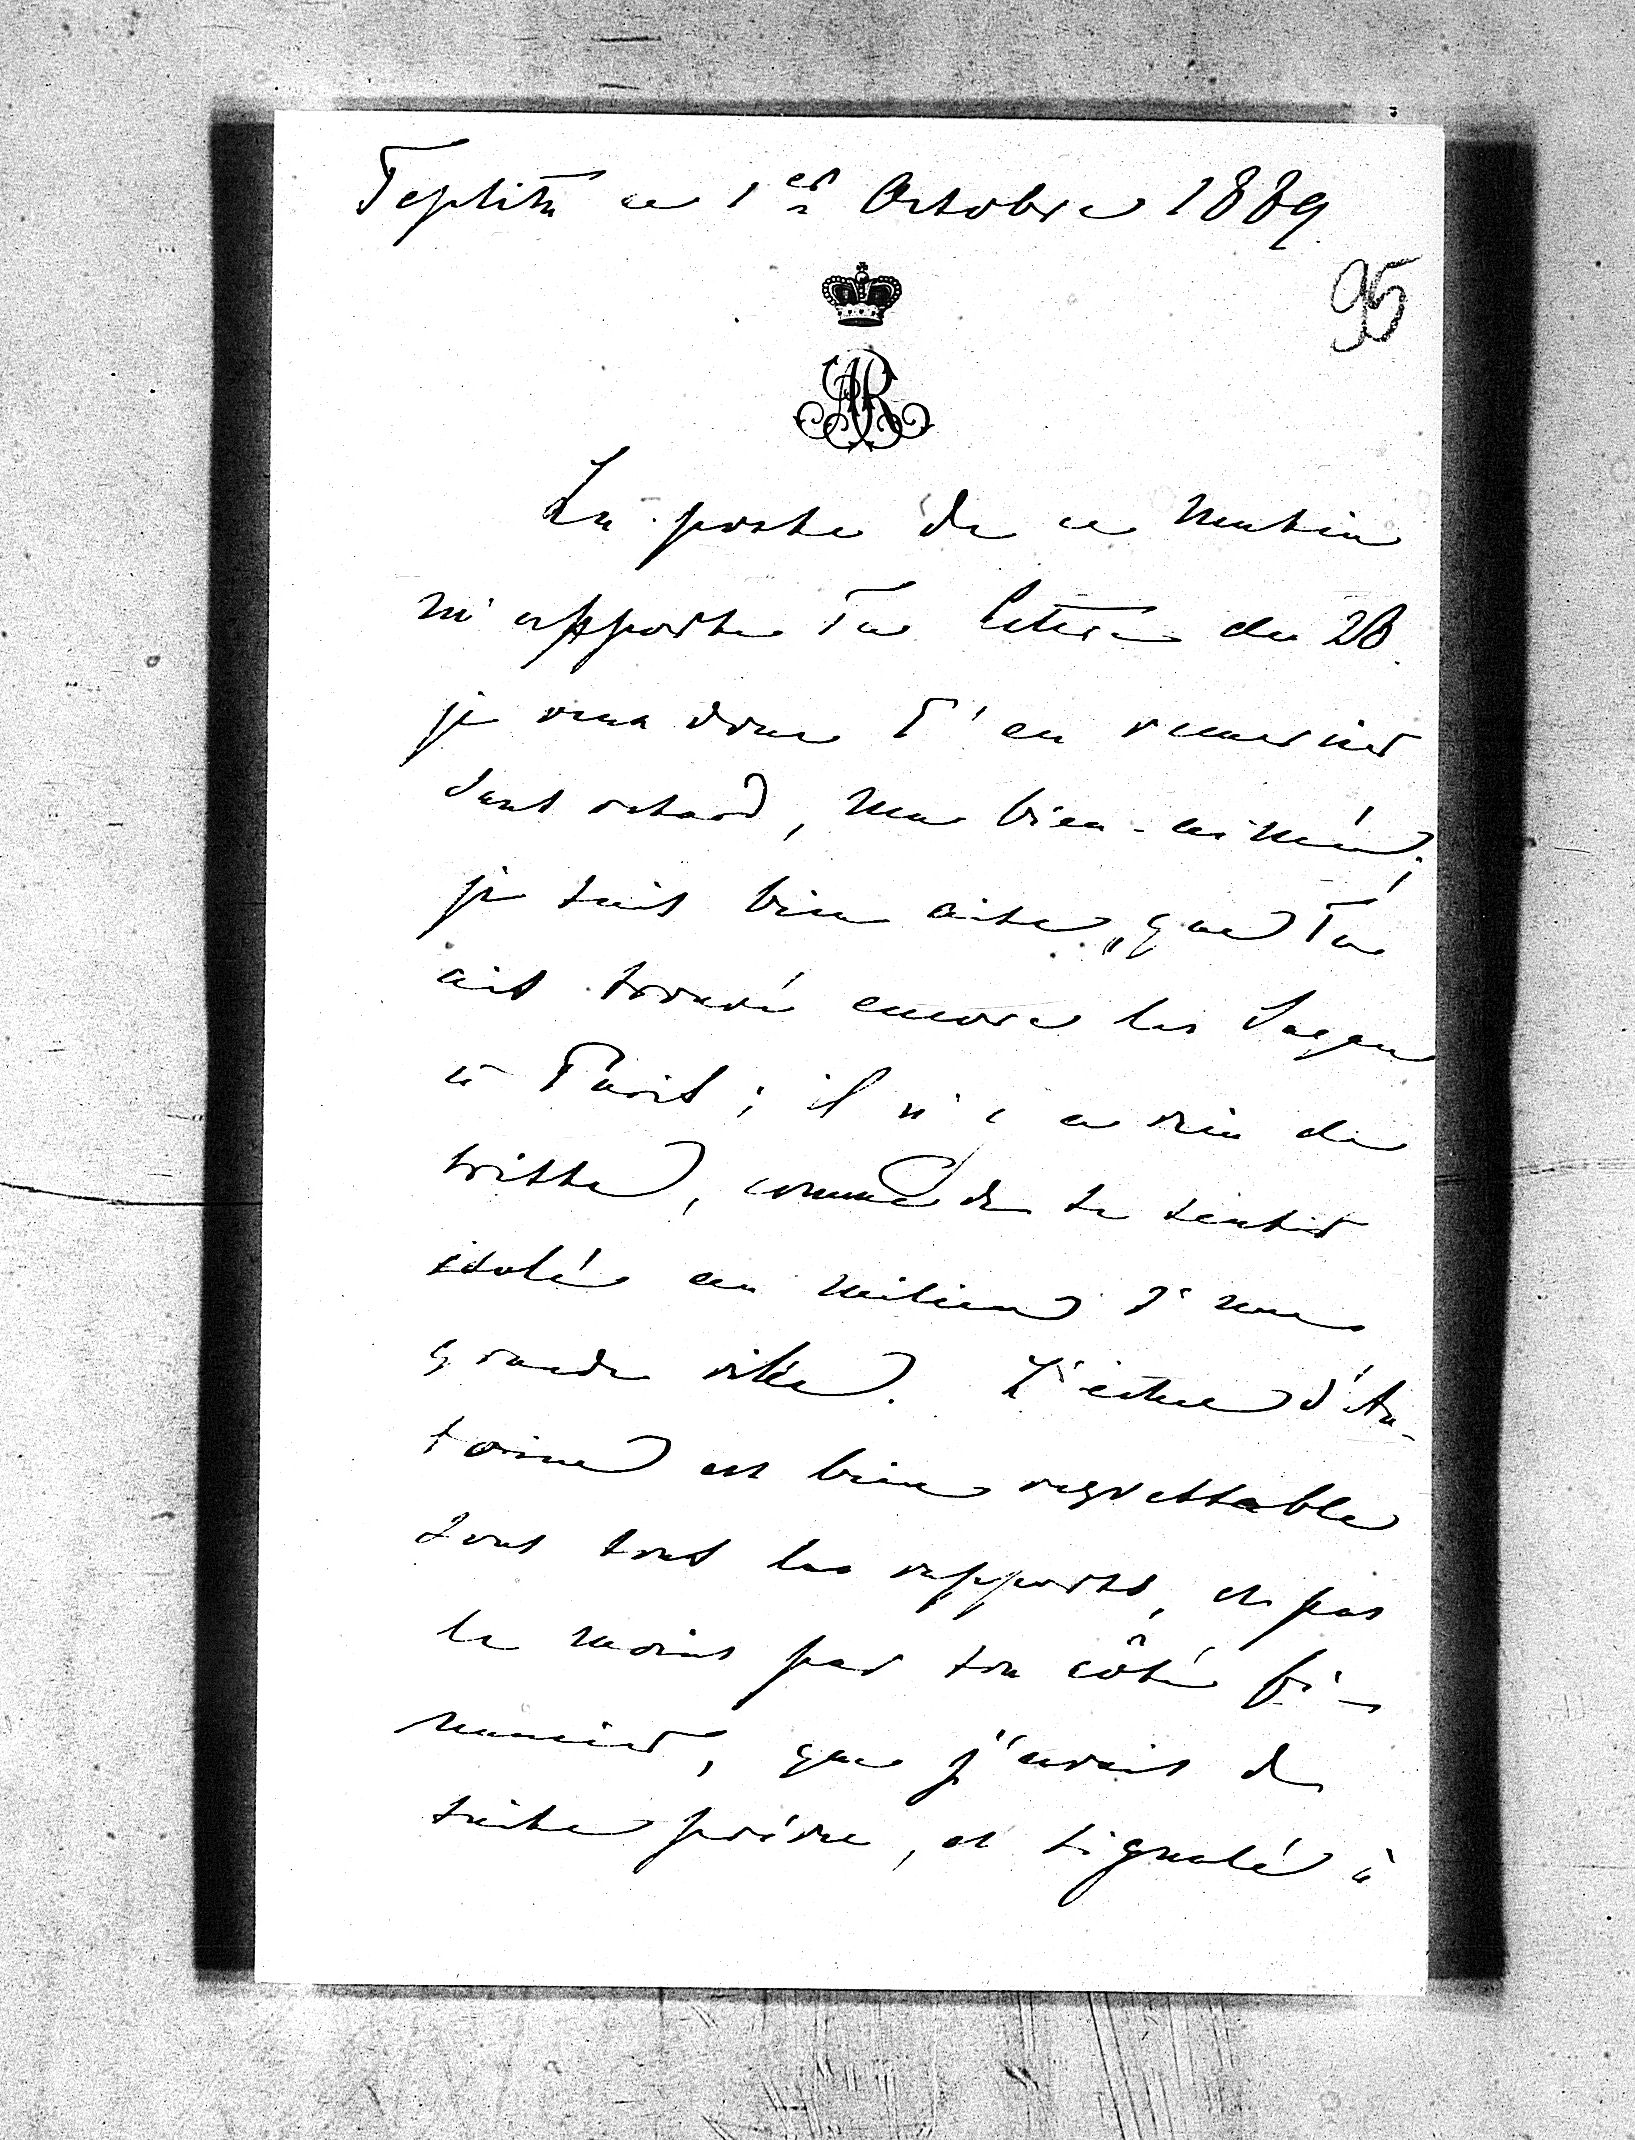 Teplitz ce 1er Octobre 1889
95
AR
La poste de ce matin
m'apporte Ta lettre du 28
je veux donc T'en remercier
sans retard, ma bien-aimée;
je suis bien aise, que Tu
ais trouvé encore les Sagan
à Paris; il n'y a rien de
triste, comme de se sentir
isolé au milieu d'une
grande ville. L'échec d'An-
toine est bien regrettable
sous tous les rapports, et pas
le moins par son côté fi-
nancier, que j'avais de
suite prévu, et signalé à